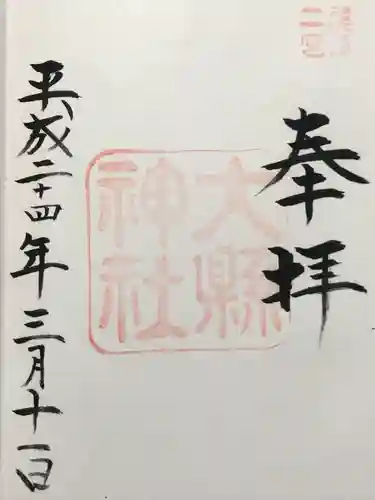 二宮
奉拝
大縣
神社
平成二十四年三月十一日